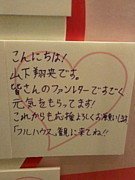 こんにちは!
山下翔央です。
皆さんのファンレターですごく
元気をもらってます!
これからも応援よろしくお願いします
「フルハウス」観に来てね!!